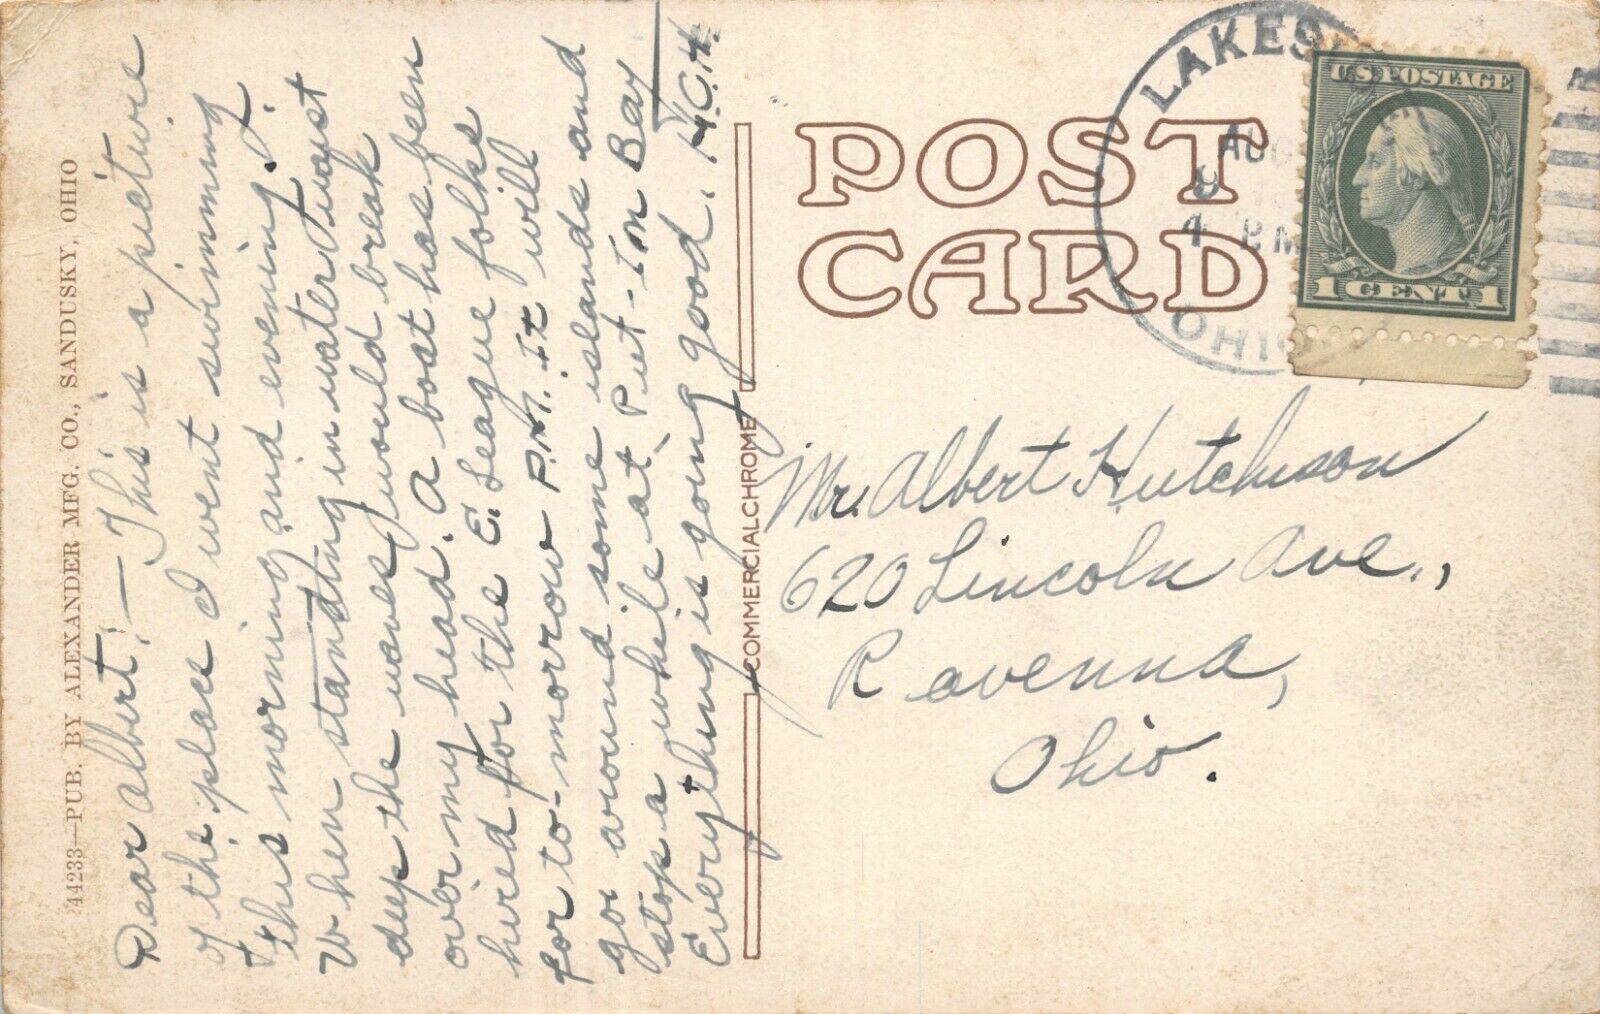 44233—PUB. BY ALEXANDER MFG. CO., SANDUSKY, OHIO
Dear Albert:— This is a picture
of the place I went swimming
this morning and evening.
When standing in water waist
deep the waves would break
over my head. A boat has been
hired for the E. League folks
for to-morrow P.M. It will
go around some islands and
stop a while at Put-In Bay
Everything is going good. H.C.H.
COMMERCIALCHROME
POST
CARD
LAKESIDE
AUG
4 PM
OHIO
U.S. POSTAGE
1 CENT 1
Mr. Albert Hutchison
620 Lincoln Ave.,
Ravenna,
Ohio.